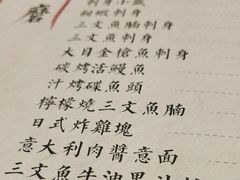 磨
刺身小飯
甜蝦刺身
三文魚腩刺身
三文魚刺身
大目金槍魚刺身
碳烤活鰻魚
汁烤碟魚頭
檸檬燒三文魚腩
日式炸雞塊
意大利肉醬意面
三文魚牛油果